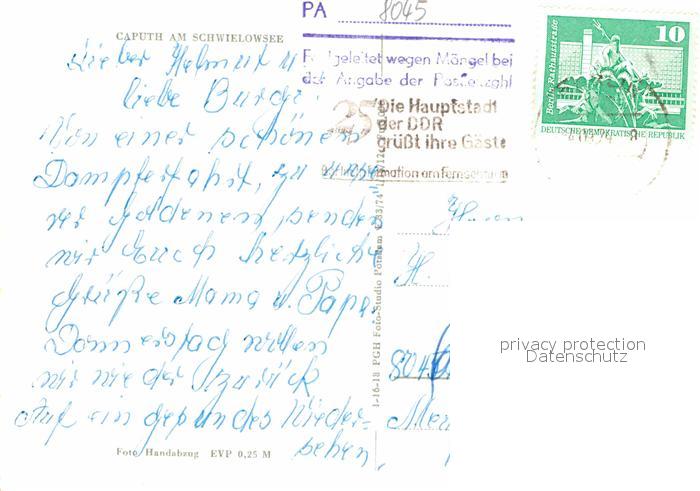 PA 8045
CAPUTH AM SCHWIELOWSEE
Lieber Helmut u
liebe Burgi.
Von einer schönen
Dampferfahrt, zu
senden
wir Euch herzliche
Grüße Mama u. Papa.
Donnerstag wollen
wir wieder zurück
Auf ein gesundes Wieder-
sehen,
Foto Handabzug EVP 0,25 M
1-16-18 PGH Foto-Studio Potsdam
wegen Mängel bei
der Angabe der Postleitzahl
25
Die Hauptstadt
der DDR
grüßt ihre Gäste
Information am Fernsehturm
10
Berlin, Rathausstraße
DEUTSCHE DEMOKRATISCHE REPUBLIK
H.
8045
privacy protection
Datenschutz